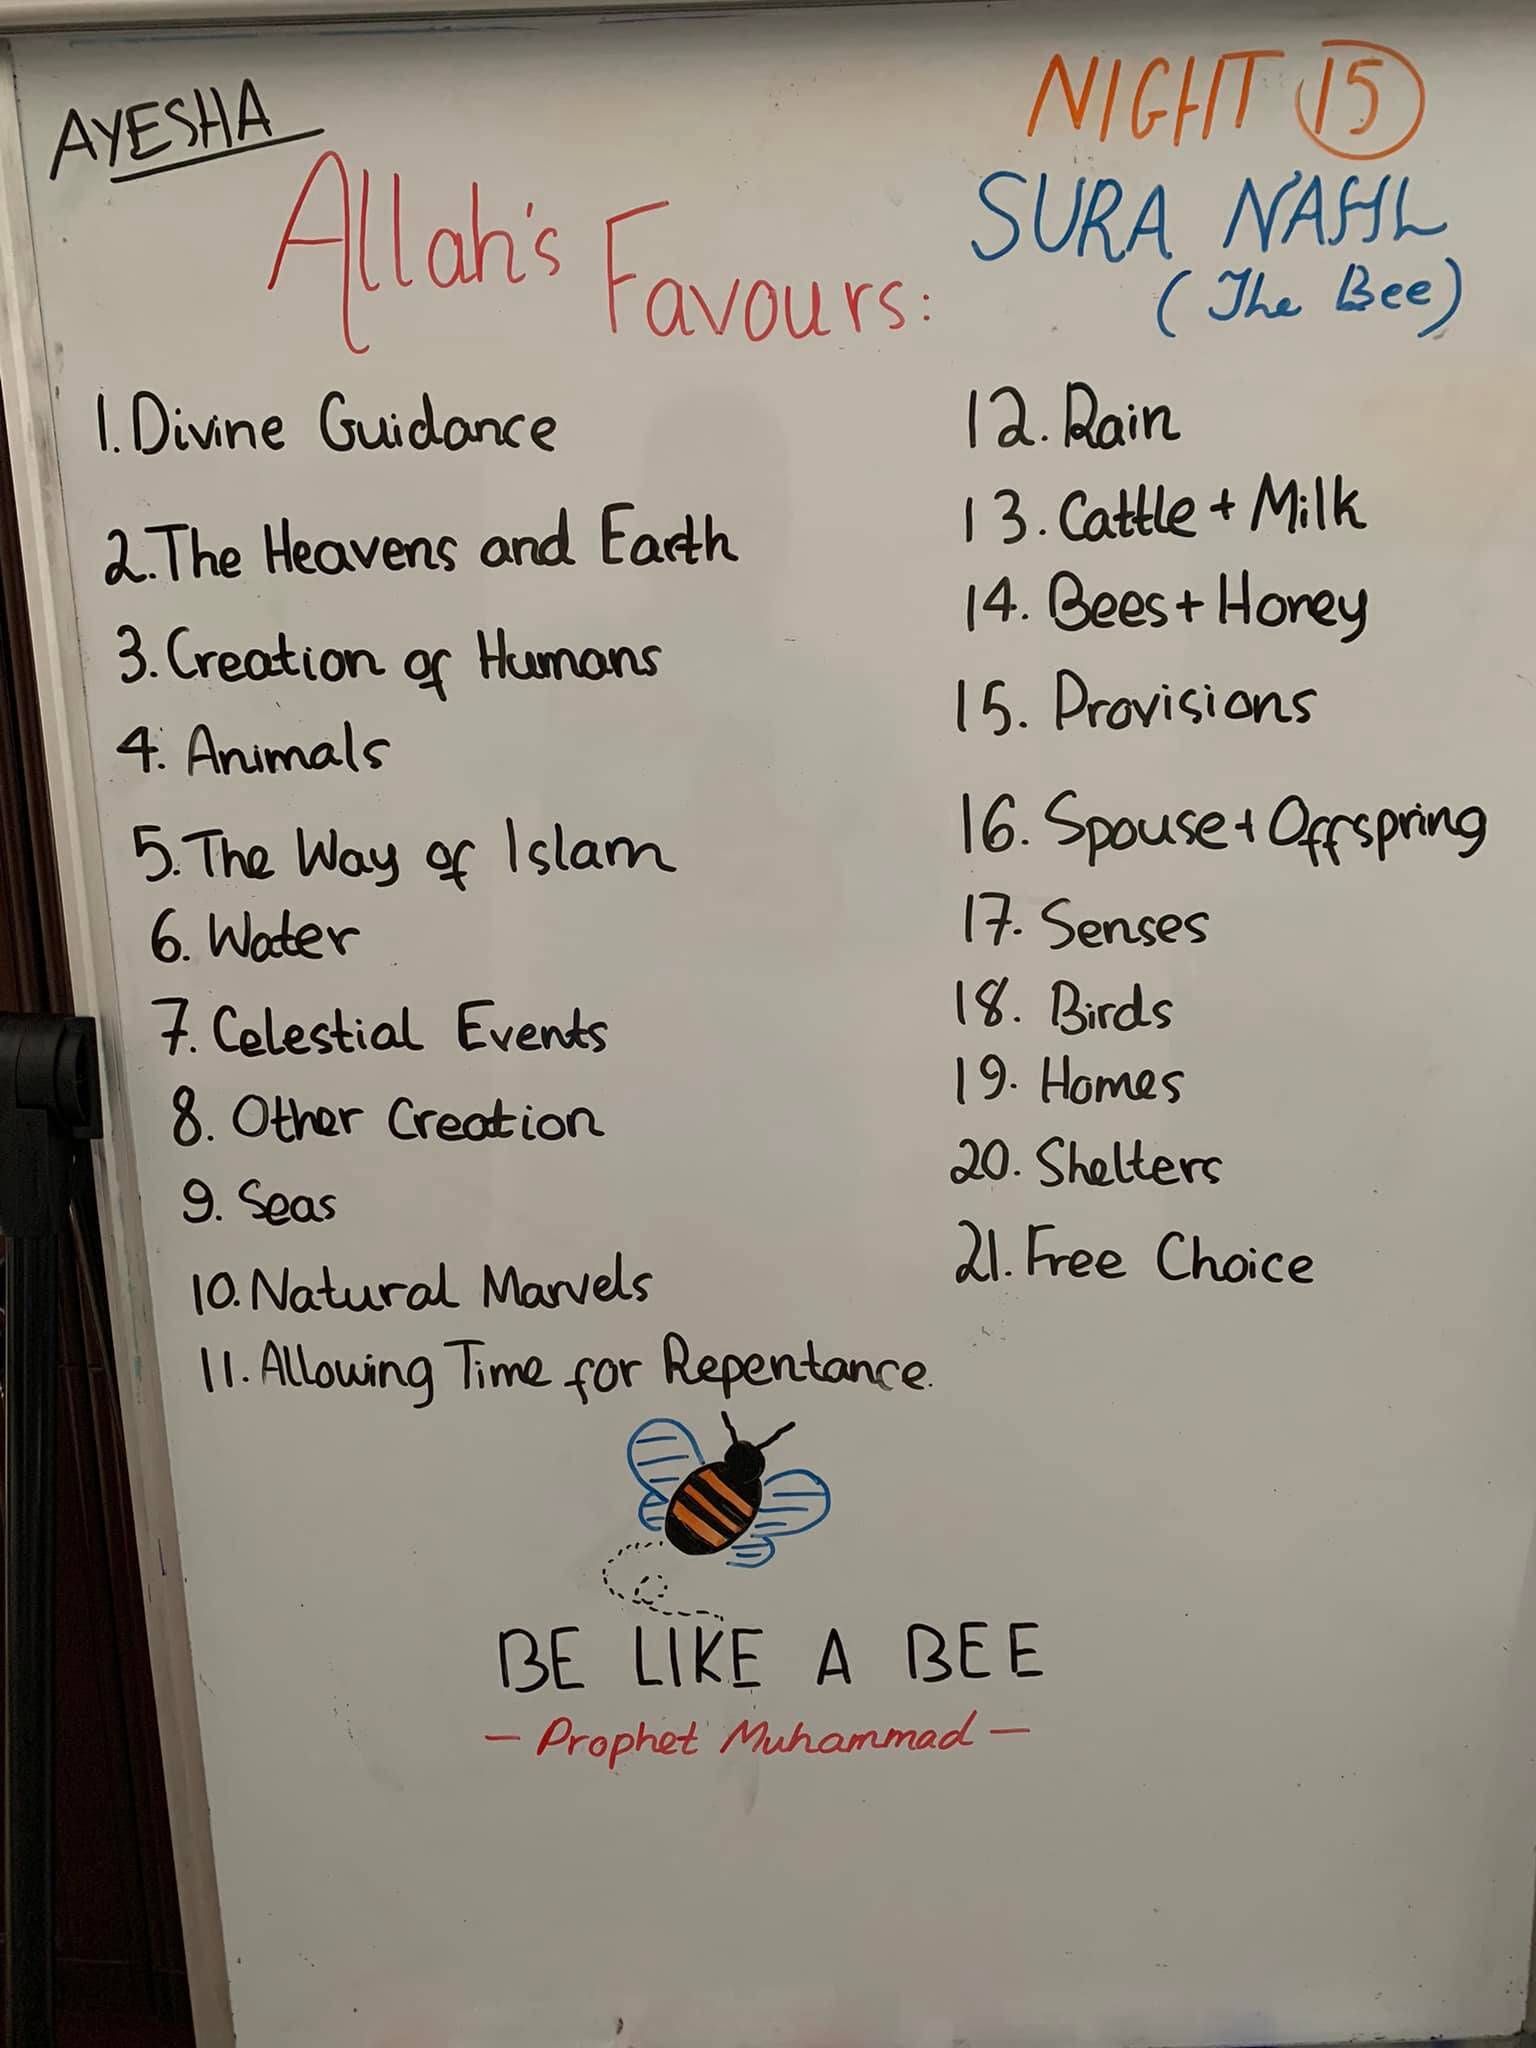 AYESHA
NIGHT 15
Allah's Favours:
SURA NAHL
(The Bee)
1. Divine Guidance
2. The Heavens and Earth
3. Creation of Humans
4. Animals
5. The Way of Islam
6. Water
7. Celestial Events
8. Other Creation
9. Seas
10. Natural Marvels
11. Allowing Time for Repentance.
12. Rain
13. Cattle + Milk
14. Bees + Honey
15. Provisions
16. Spouse + Offspring
17. Senses
18. Birds
19. Homes
20. Shelters
21. Free Choice
BE LIKE A BEE
- Prophet Muhammad -